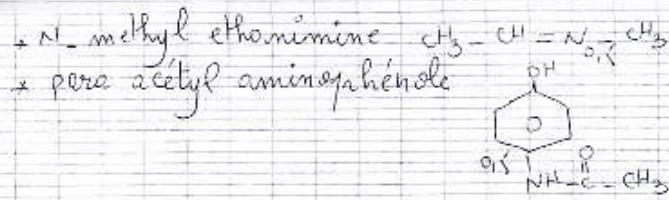 * N_ methyl ethanimine CH3 - CH = N - CH3
0,5
* para acétyl aminophénole
OH
0,5
O
NH-C-CH3